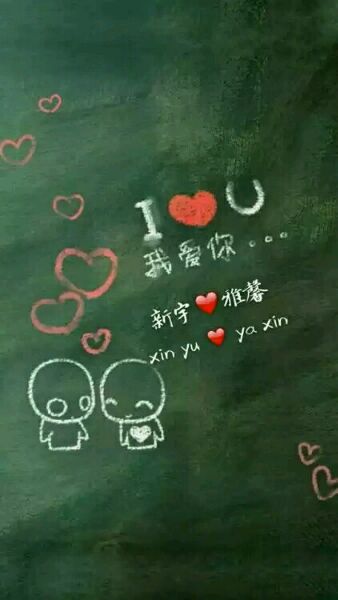 I ❤ U
我爱你...
新宇❤雅馨
xin yu ❤ ya xin